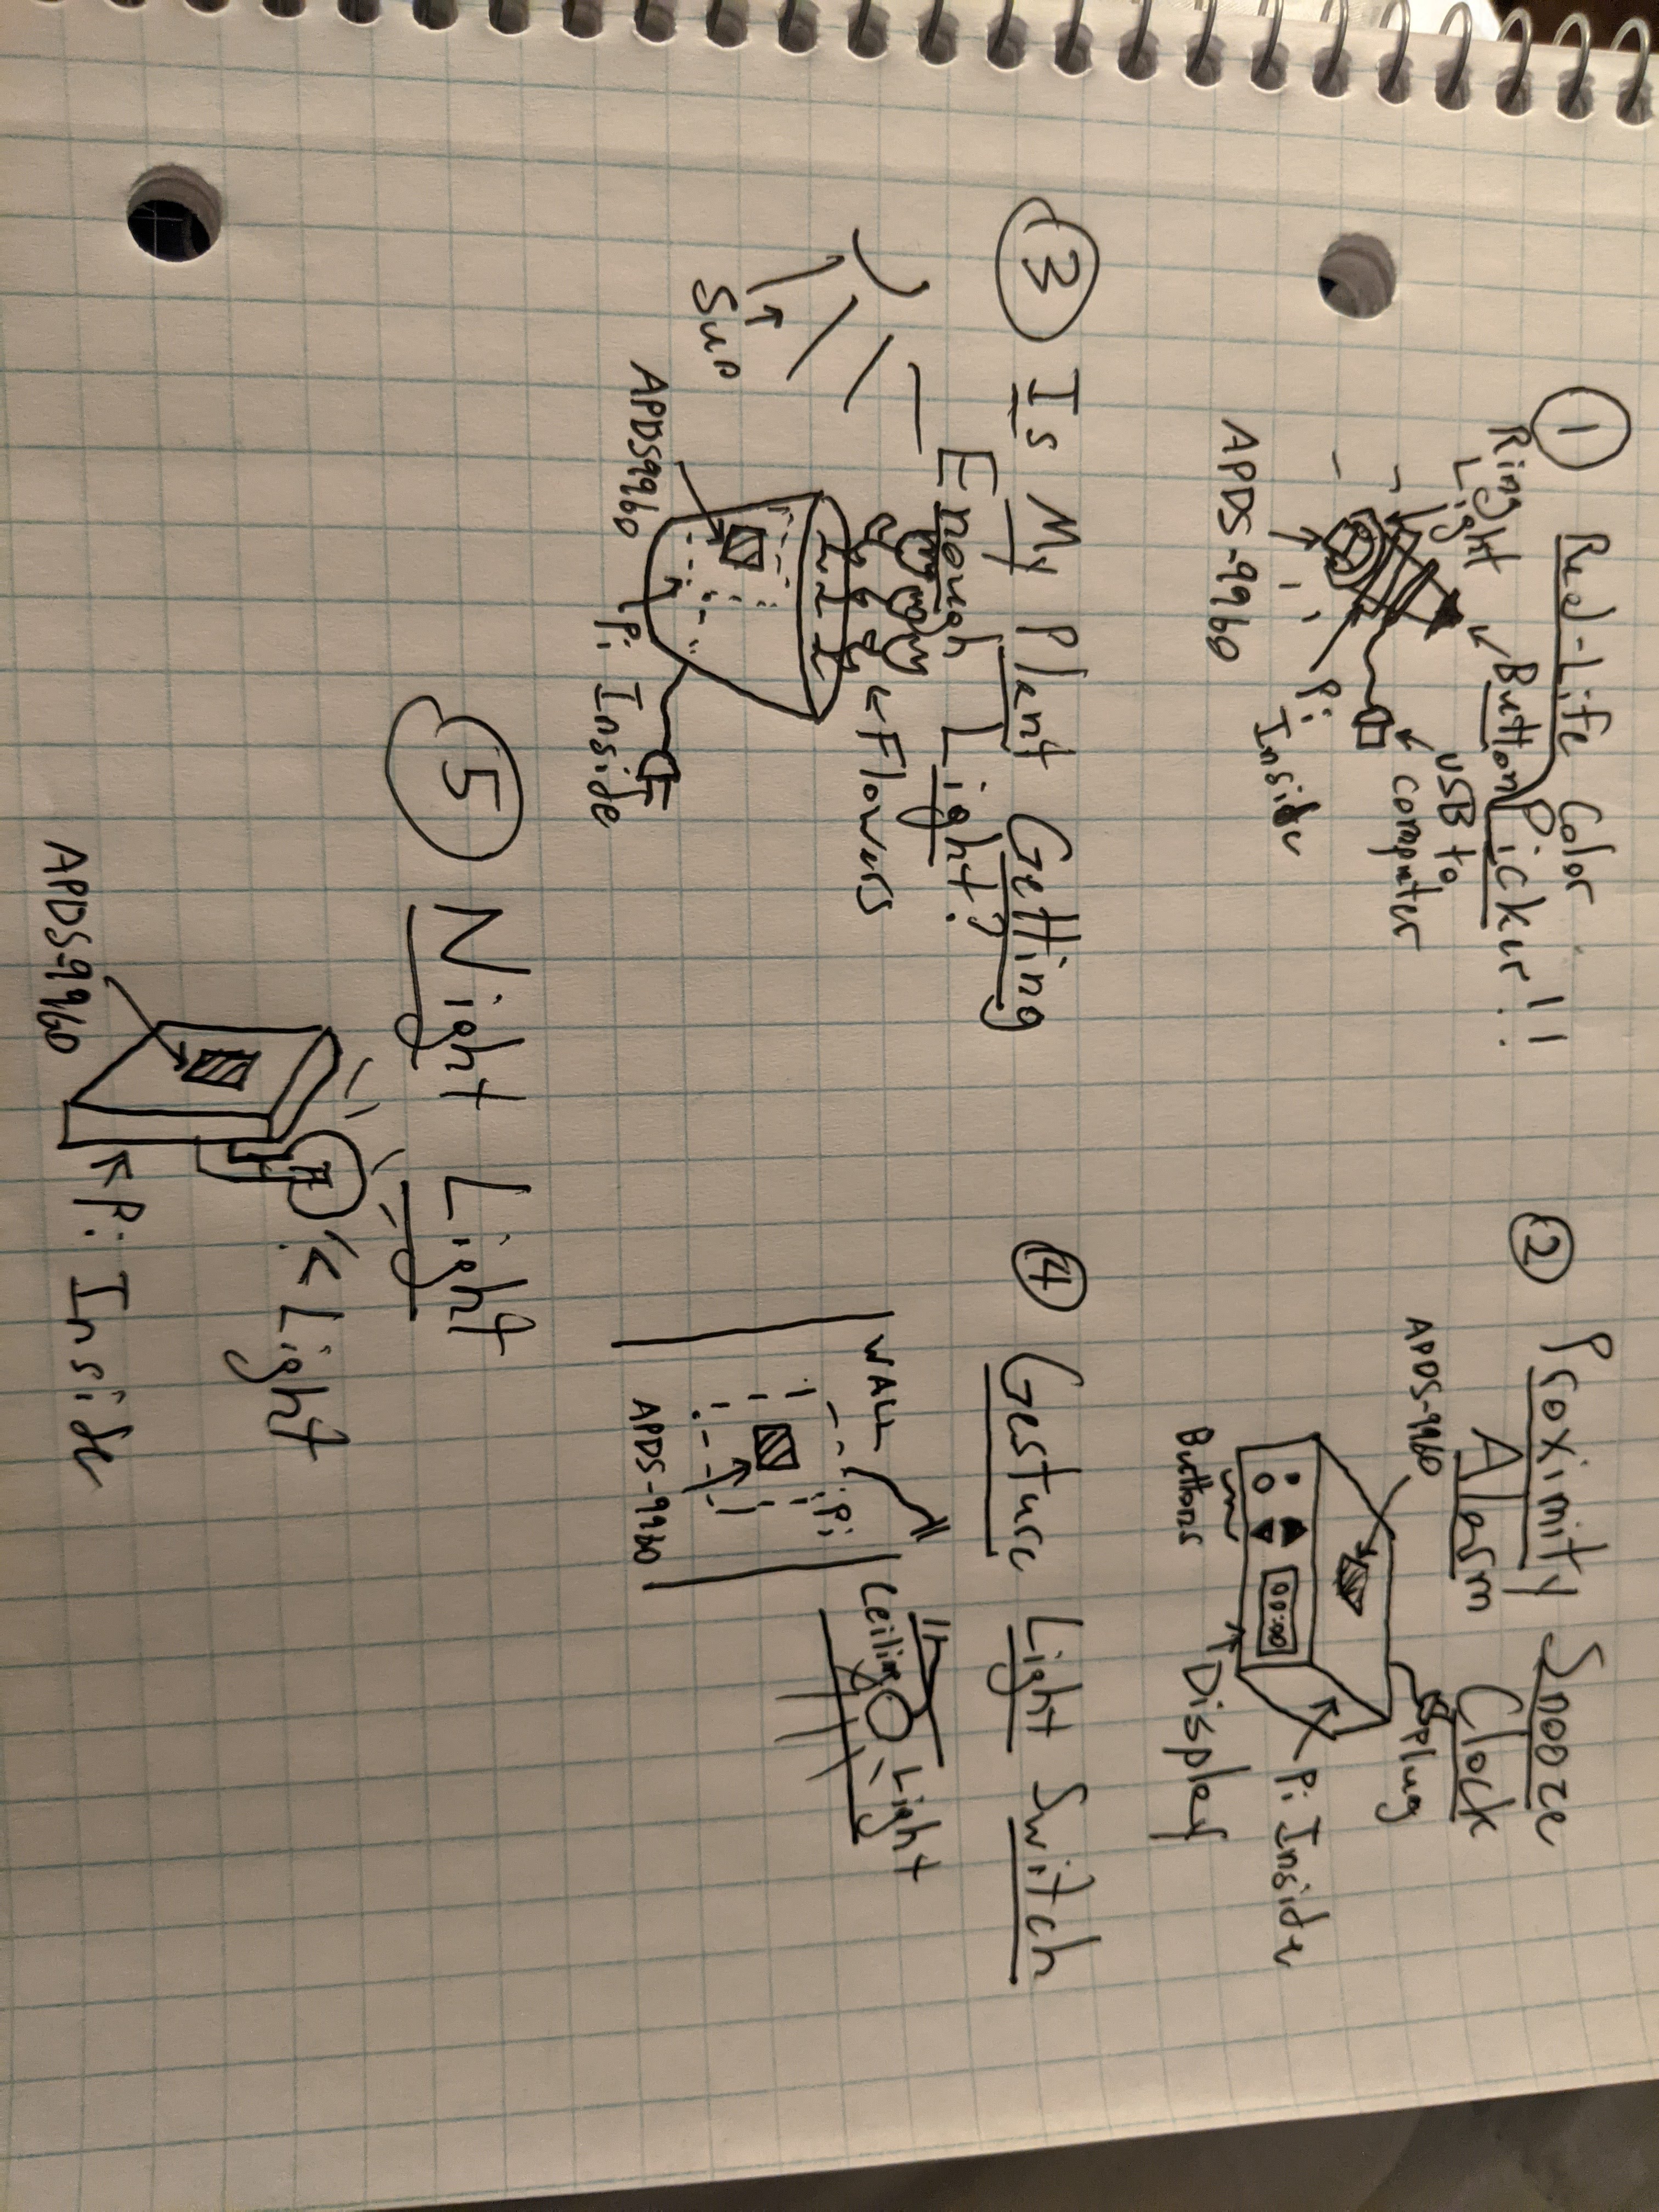 1 Real-Life Color
Picker!!
Ring
Light
Button
USB to
computer
Pi
Inside
APDS-9960
2 Proximity Snooze
Alarm Clock
APDS-9960
Plug
Pi Inside
00:00
Buttons
Display
3 Is My Plant Getting
Enough Light?
Flowers
Sun
APDS9960
Pi Inside
4 Gesture Light Switch
WALL
Pi
Ceiling
Light
APDS-9960
5 Night Light
Light
APDS-9960
Pi Inside